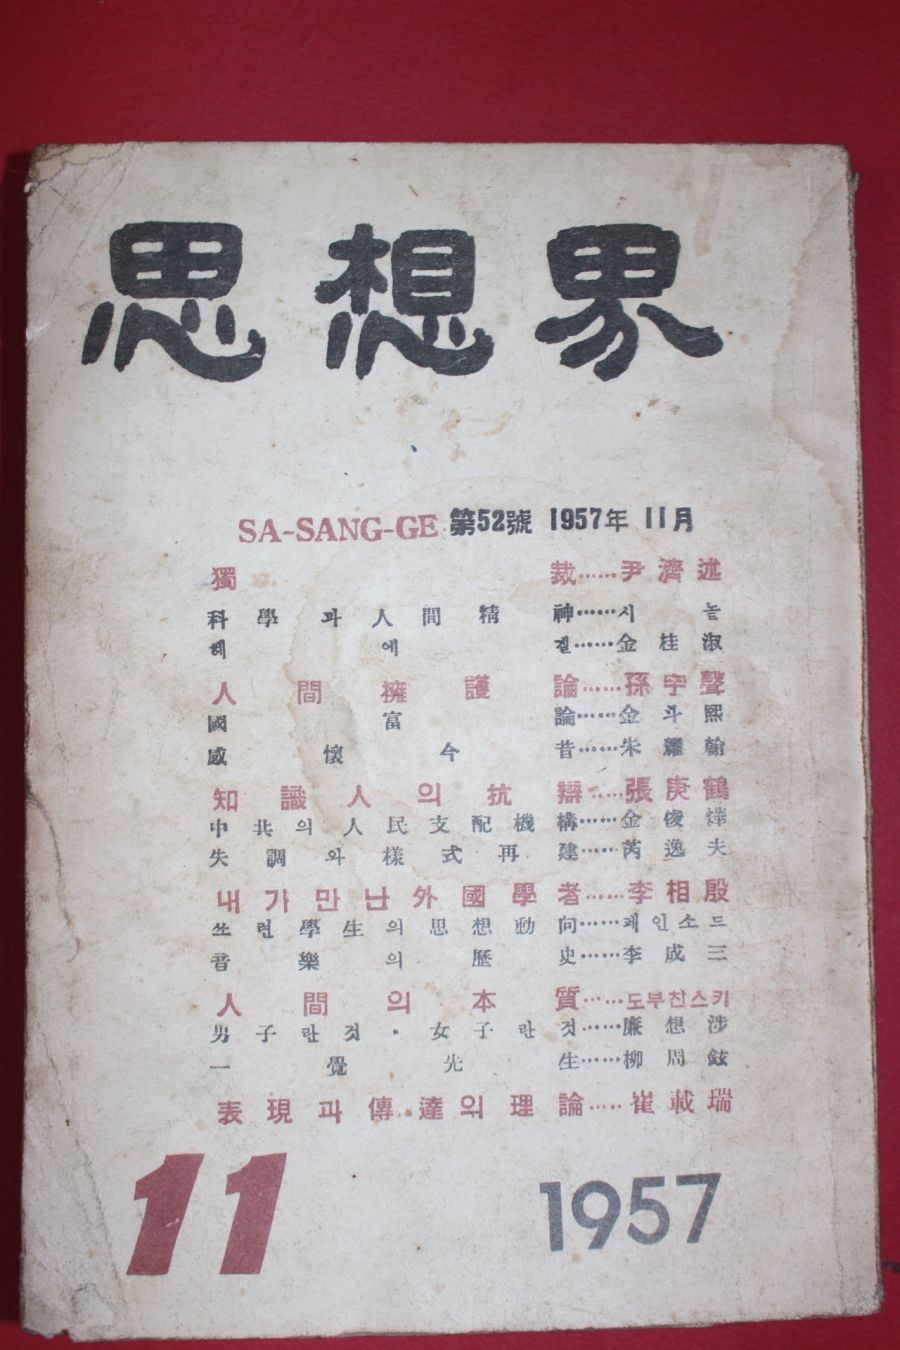 思想界
SA-SANG-GE 第52號 1957年 11月
獨裁……尹濟述
科學과人間精神……시놀
헤에겔……金桂淑
人間擁護論……孫宇聲
國富論……金斗熙
感懷今昔……朱耀翰
知識人의抗辯……張庚鶴
中共의人民支配機構……金俊燁
失調와樣式再建……芮逸夫
내가만난外國學者……李相殷
쏘련學生의思想動向……페인소드
音樂의歷史……李成三
人間의本質……도부찬스키
男子란것·女子란것……廉想涉
一覺先生……柳周鉉
表現과傳達의理論……崔載瑞
11
1957